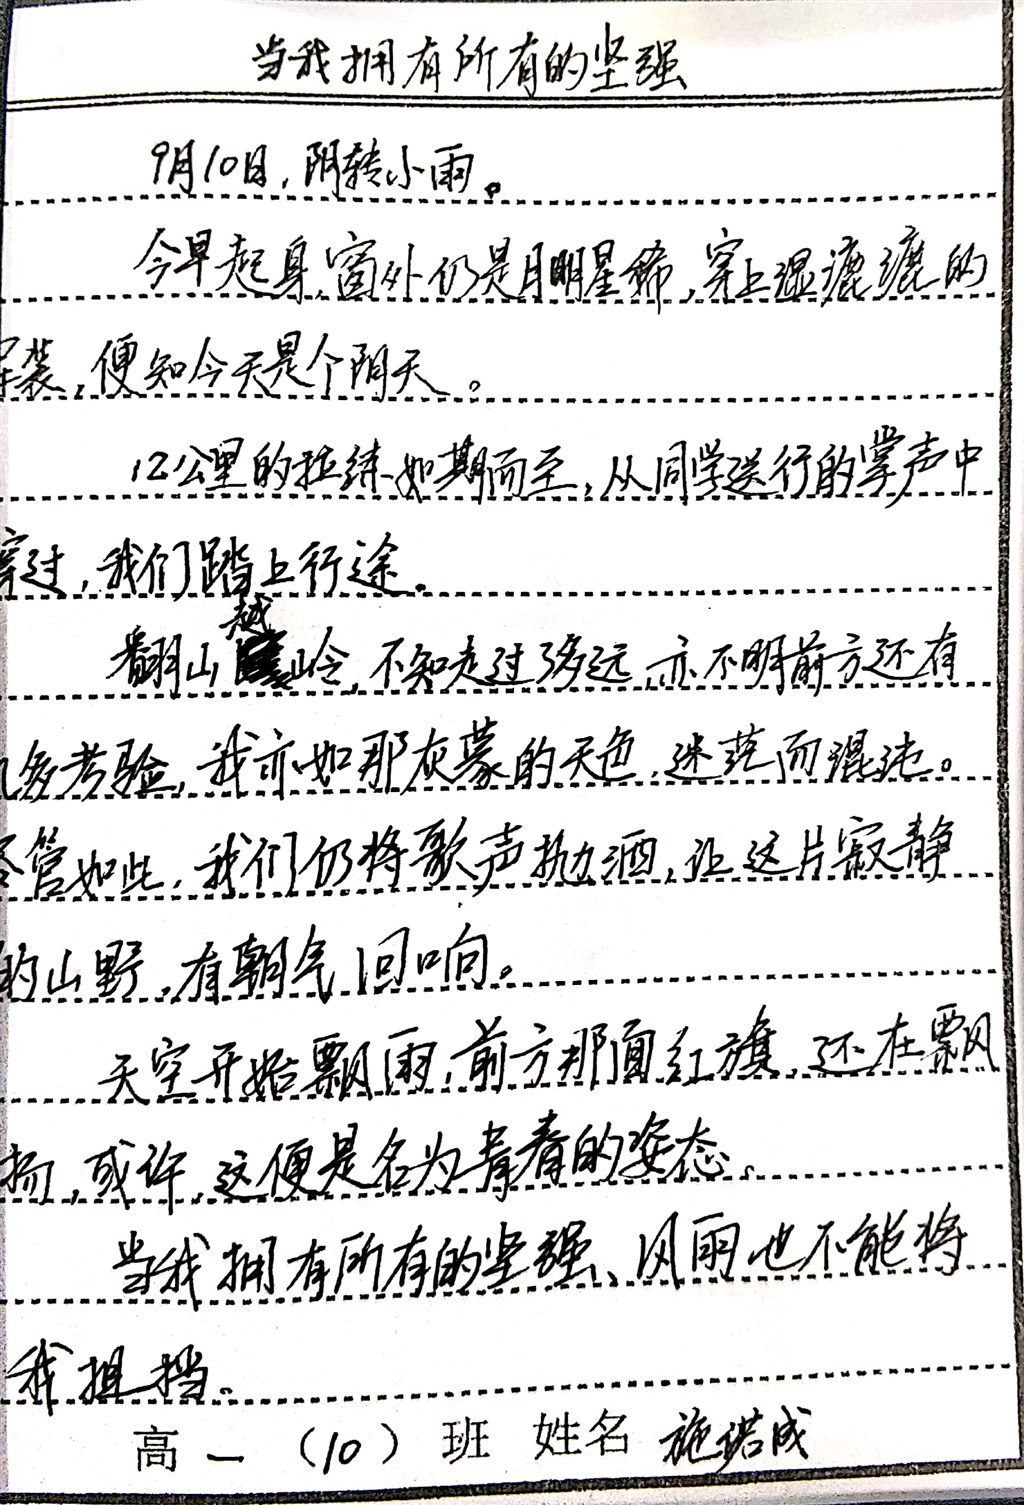 当我拥有所有的坚强
9月10日,阴转小雨。
今早起身,窗外仍是月明星稀,穿上湿漉漉的
军装,便知今天是个阴天。
12公里的拉练如期而至,从同学送行的掌声中
穿过,我们踏上行途。
翻山越岭,不知走过多远,亦不明前方还有
几多考验,我亦如那灰蒙的天色,迷茫而混沌。
尽管如此,我们仍将歌声抛洒,让这片寂静
的山野,有朝气回响。
天空开始飘雨,前方那面红旗,还在飘
扬,或许,这便是名为青春的姿态。
当我拥有所有的坚强、风雨也不能将
我抯挡。
高一(10)班 姓名 施诺成